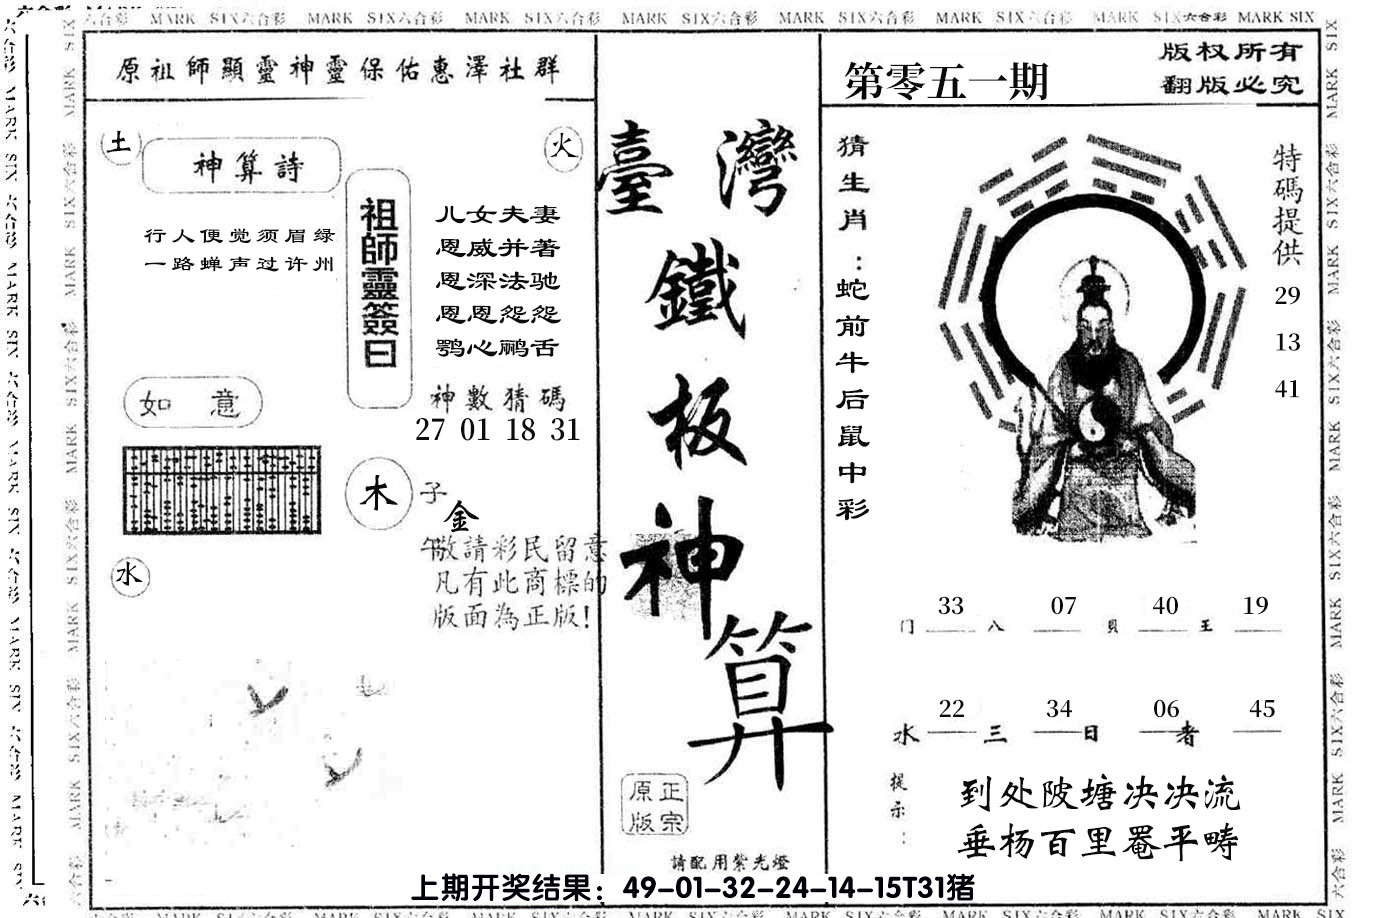 六合彩 MARK SIX六合彩 MARK SIX六合彩 MARK SIX六合彩 MARK SIX六合彩 MARK SIX六合彩 MARK SIX六合彩 MARK SIX六合彩 MARK SIX
原祖師顯靈神靈保佑惠澤社群
土
火
神算詩
行人便觉须眉绿
一路蝉声过许州
祖師靈簽曰
儿女夫妻
恩威并著
恩深法驰
恩恩怨怨
鹗心鹂舌
如意
神數猜碼
27 01 18 31
木
子
金
午
水
敬請彩民留意
凡有此商標的
版面為正版!
臺灣
鐵
板
神
算
正宗
原版
請配用紫光燈
第零五一期
版权所有
翻版必究
猜生肖：蛇前牛后鼠中彩
特碼提供
29
13
41
33 07 40 19
门 八 貝 王
22 34 06 45
水 三 日 者
提示：
到处陂塘决决流
垂杨百里罨平畴
上期开奖结果：49-01-32-24-14-15T31猪